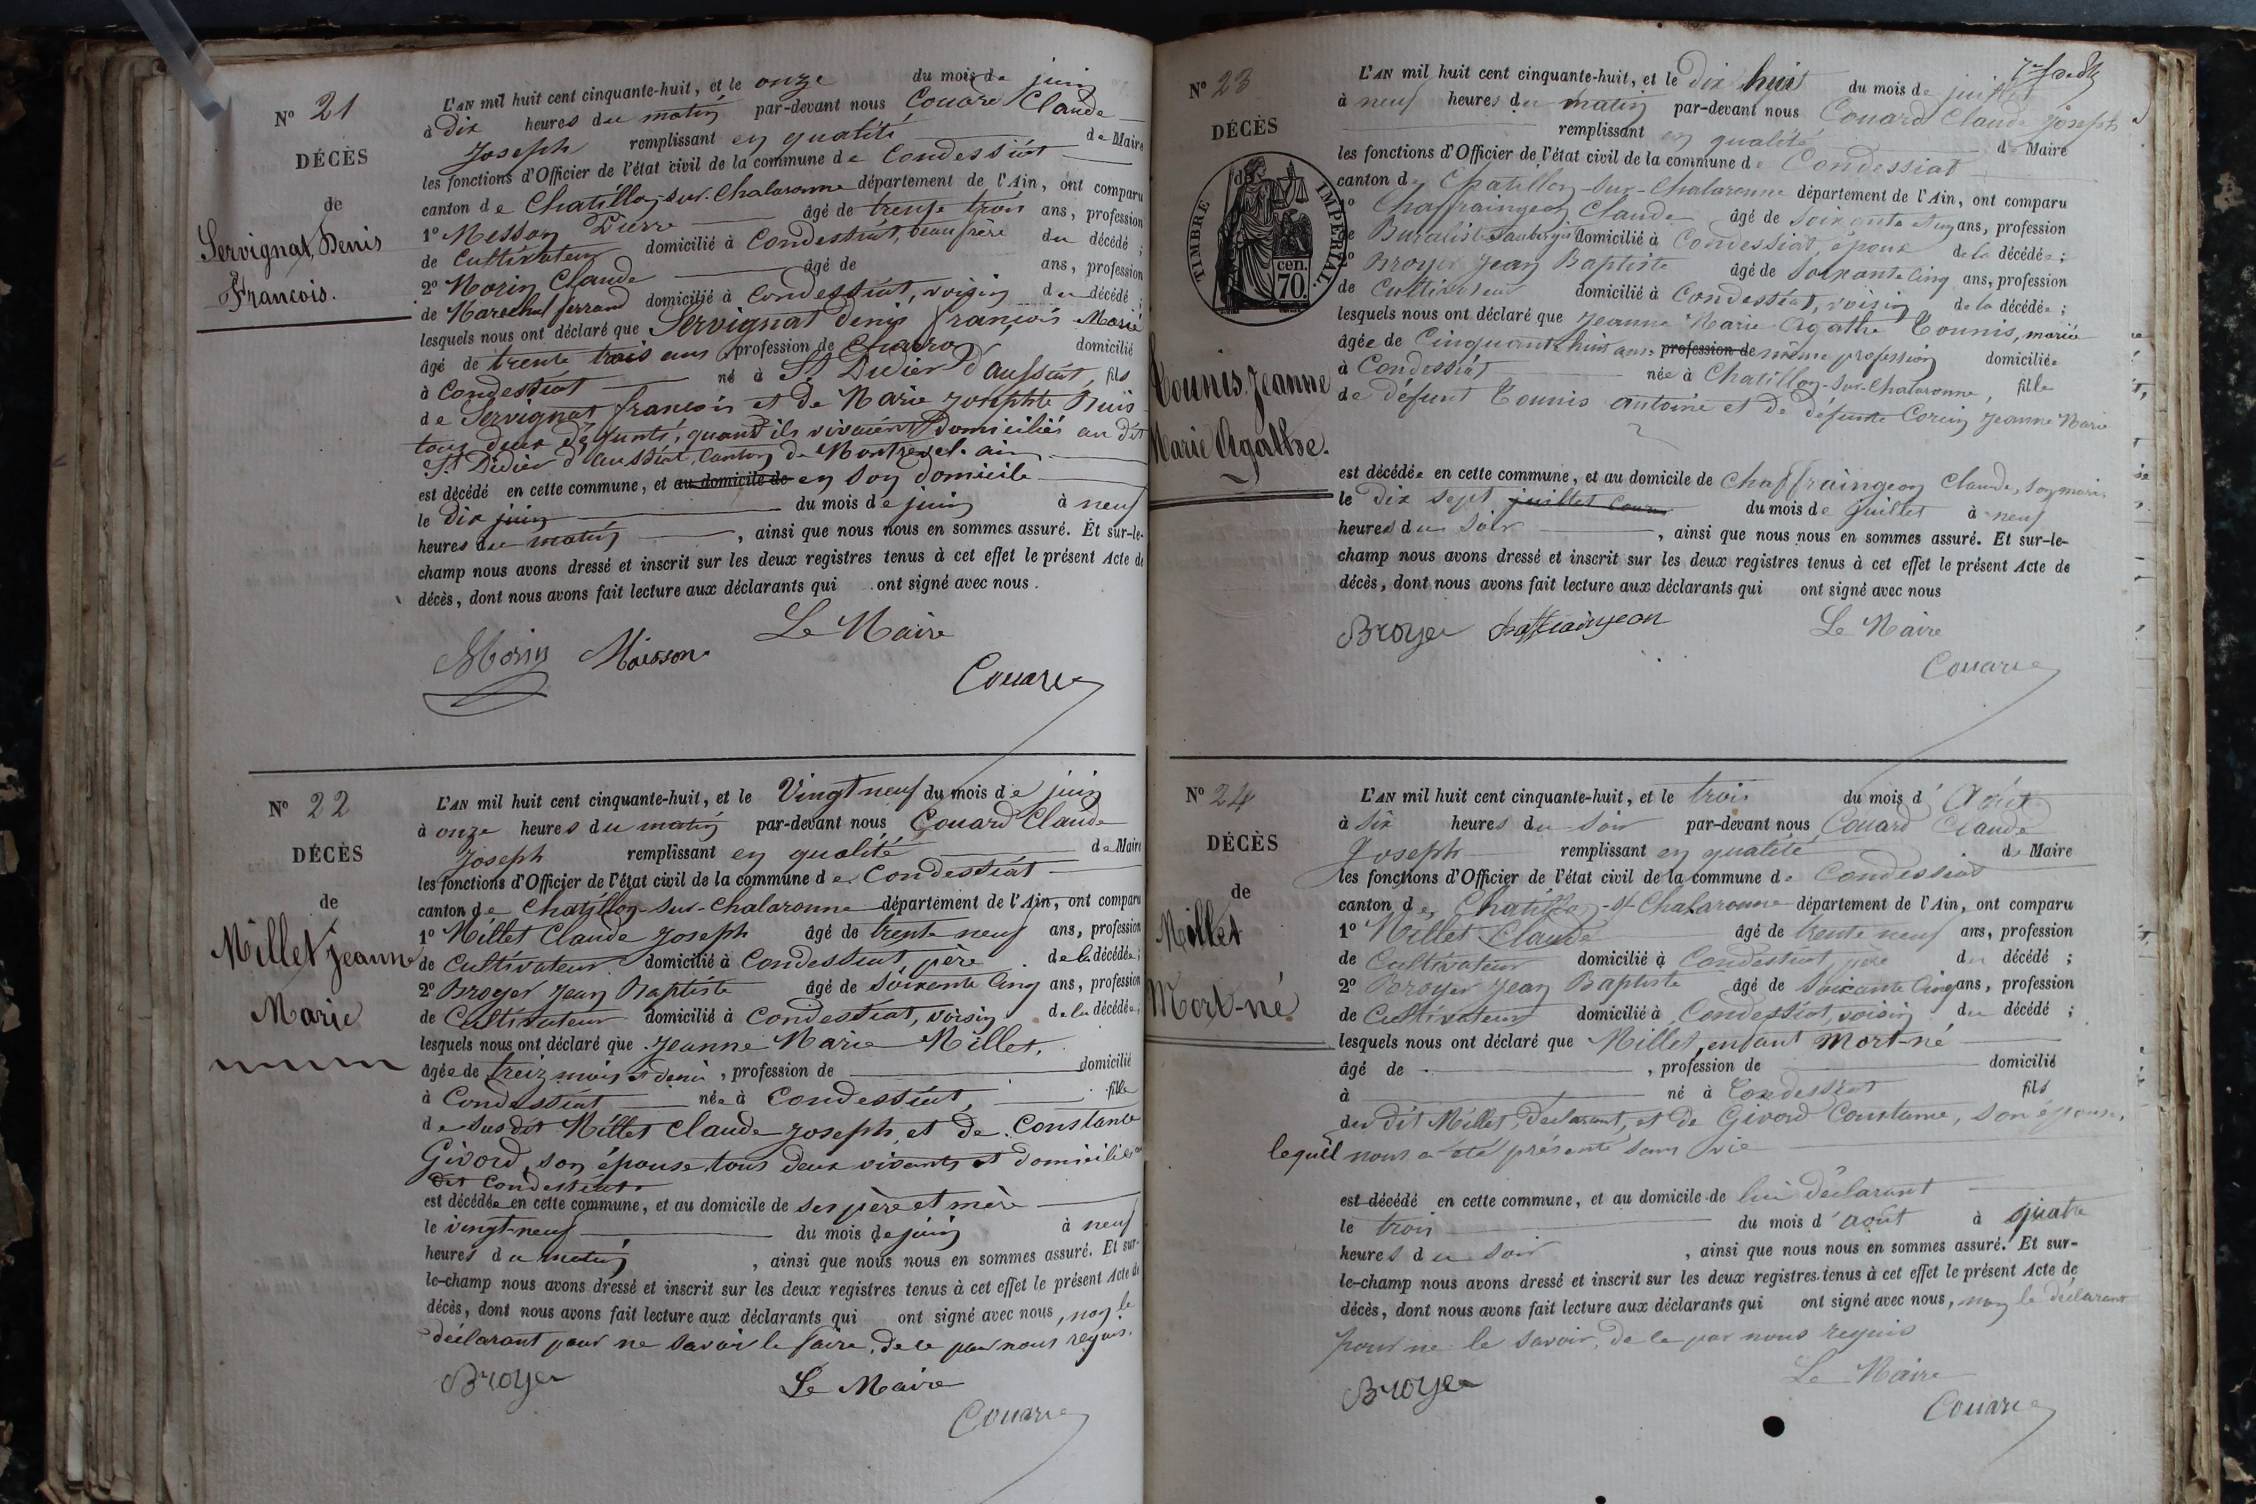 N° 21
DÉCÈS
de
Servignat, Denis
François.
L'AN mil huit cent cinquante-huit, et le onze du mois de juin
à dix heures du matin par-devant nous Couard Claude
Joseph remplissant en qualité de Maire
les fonctions d'Officier de l'état civil de la commune de Condessiat
canton de Chatillon-sur-Chalaronne département de l'Ain, ont comparu
1° Messon Pierre âgé de trente trois ans, profession
de Cultivateur domicilié à Condessiat, beau frère du décédé ;
2° Morin Claude âgé de ans, profession
de Marechal ferrand domicilié à Condessiat, voisin du décédé ;
lesquels nous ont déclaré que Servignat denis françois Marié
âgé de trente trois ans profession de Charron domicilié
à Condessiat né à St Didier d'Aussiat, fils
de Servignat françois et de Marie Josephte Buis
tous deux défunts, quand ils vivaient domiciliés au dit
St Didier d'Aussiat, Canton de Montrevel. ain
est décédé en cette commune, et au domicile de en son domicile
le dix juin du mois de juin à neuf
heures du matin, ainsi que nous nous en sommes assuré. Et sur-le-
champ nous avons dressé et inscrit sur les deux registres tenus à cet effet le présent Acte de
décès, dont nous avons fait lecture aux déclarants qui ont signé avec nous.
Le Maire
Morin Maisson
Couard
N° 22
DÉCÈS
de
Millet Jeanne
Marie
L'AN mil huit cent cinquante-huit, et le Vingt neuf du mois de juin
à onze heures du matin par-devant nous Couard Claude
Joseph remplissant en qualité de Maire
les fonctions d'Officier de l'état civil de la commune de Condessiat
canton de Chatillon-sur-Chalaronne département de l'Ain, ont comparu
1° Millet Claude Joseph âgé de trente neuf ans, profession
de Cultivateur domicilié à Condessiat père de la décédée ;
2° Broyer Jean Baptiste âgé de soixente Cinq ans, profession
de Cultivateur domicilié à Condessiat, voisin de la décédée ;
lesquels nous ont déclaré que Jeanne Marie Millet,
âgée de treiz mois et demi, profession de domicilié
à Condessiat née à Condessiat, fille
de susdit Millet Claude Joseph, et de Constante
Givord, son épouse tous deux vivants et domiciliés au
dit Condessiat
est décédée en cette commune, et au domicile de ses père et mère
le vingt-neuf du mois de juin à neuf
heures du matin, ainsi que nous nous en sommes assuré. Et sur-
le-champ nous avons dressé et inscrit sur les deux registres tenus à cet effet le présent Acte de
décès, dont nous avons fait lecture aux déclarants qui ont signé avec nous, non le
déclarant pour ne savoir le faire, de ce par nous requis.
Broyer Le Maire
Couard
N° 23
DÉCÈS
de
TIMBRE IMPÉRIAL.
cen.
70.
Tounis, Jeanne
Marie Agathe.
L'AN mil huit cent cinquante-huit, et le dix huit du mois de juillet
à neuf heures du matin par-devant nous Couard Claude Joseph
remplissant en qualité de Maire
les fonctions d'Officier de l'état civil de la commune de Condessiat
canton de Chatillon-sur-Chalaronne département de l'Ain, ont comparu
1° Chaffraingeon Claude âgé de soixante et un ans, profession
de Buraliste aubergiste domicilié à Condessiat, époux de la décédée ;
2° Broyer Jean Baptiste âgé de soixante Cinq ans, profession
de Cultivateur domicilié à Condessiat, voisin de la décédée ;
lesquels nous ont déclaré que Jeanne Marie Agathe Tounis, mariée
âgée de Cinquante huit ans profession de même profession domiciliée
à Condessiat née à Chatillon-sur-Chalaronne, fille
de défunt Tounis antoine et de défunte Corin Jeanne Marie
est décédée en cette commune, et au domicile de Chaffraingeon Claude, son mari
le dix sept juillet Couran du mois de juillet à neuf
heures du soir, ainsi que nous nous en sommes assuré. Et sur-le-
champ nous avons dressé et inscrit sur les deux registres tenus à cet effet le présent Acte de
décès, dont nous avons fait lecture aux déclarants qui ont signé avec nous
Broyer Chaffraingeon Le Maire
Couard
N° 24
DÉCÈS
de
Millet
Mort-né
L'AN mil huit cent cinquante-huit, et le trois du mois d'Août
à six heures du soir par-devant nous Couard Claude
Joseph remplissant en qualité de Maire
les fonctions d'Officier de l'état civil de la commune de Condessiat
canton de Chatillon-s/-Chalaronne département de l'Ain, ont comparu
1° Millet Claude âgé de trente neuf ans, profession
de Cultivateur domicilié à Condessiat, père du décédé ;
2° Broyer Jean Baptiste âgé de soixante Cinq ans, profession
de Cultivateur domicilié à Condessiat, voisin du décédé ;
lesquels nous ont déclaré que Millet, enfant Mort-né
âgé de, profession de domicilié
à né à Condessiat fils
du dit Millet, déclarant, et de Givord Constance, son épouse,
lequel nous a été présenté sans vie
est décédé en cette commune, et au domicile de lui déclarant
le trois du mois d'août à quatre
heures du soir, ainsi que nous nous en sommes assuré. Et sur-
le-champ nous avons dressé et inscrit sur les deux registres tenus à cet effet le présent Acte de
décès, dont nous avons fait lecture aux déclarants qui ont signé avec nous, non le déclarant
pour ne le savoir, de ce par nous requis
Le Maire
Broyer
Couard